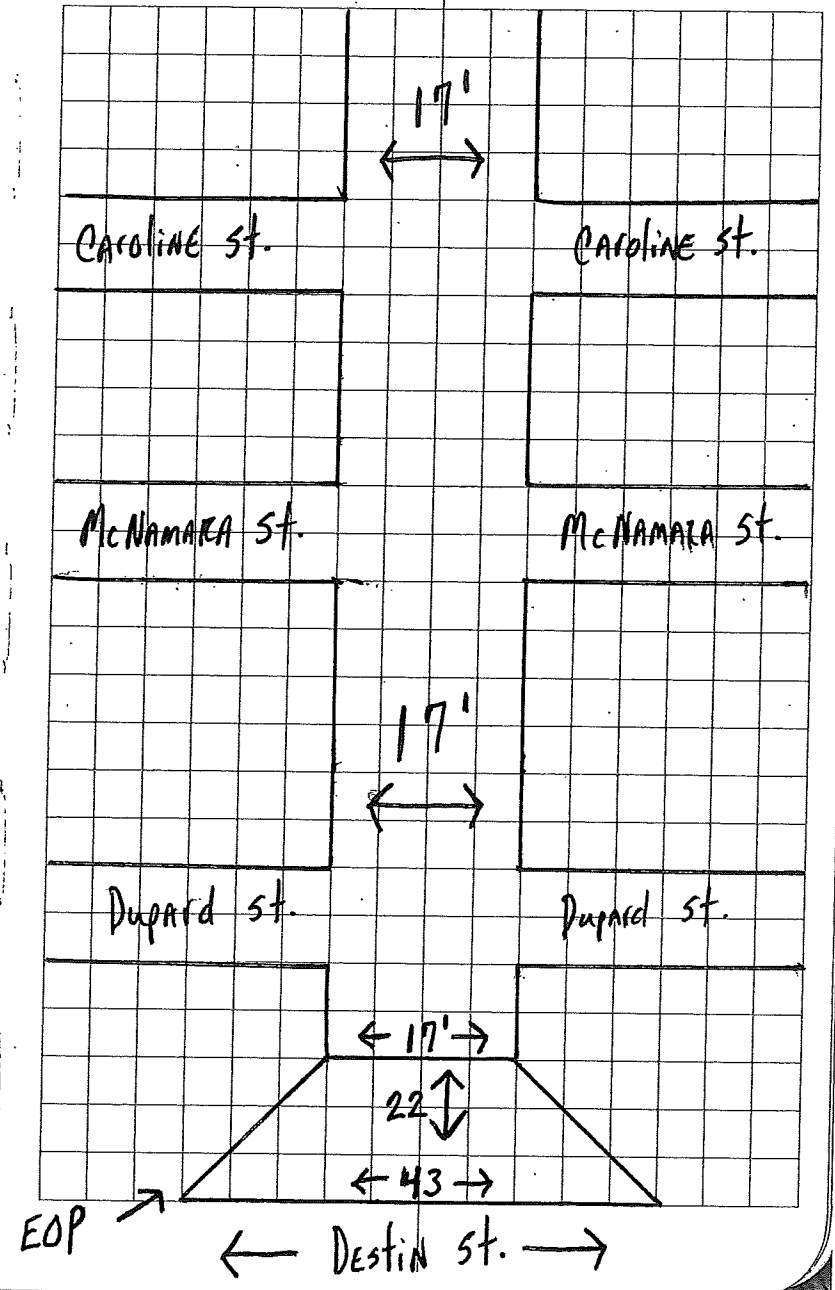 17'
CAroliNE St.
CAroliNE St.
McNAMARA St.
McNAMARA St.
17'
DupArd St.
DupArd St.
17'
22
43
EOP
DEStiN St.